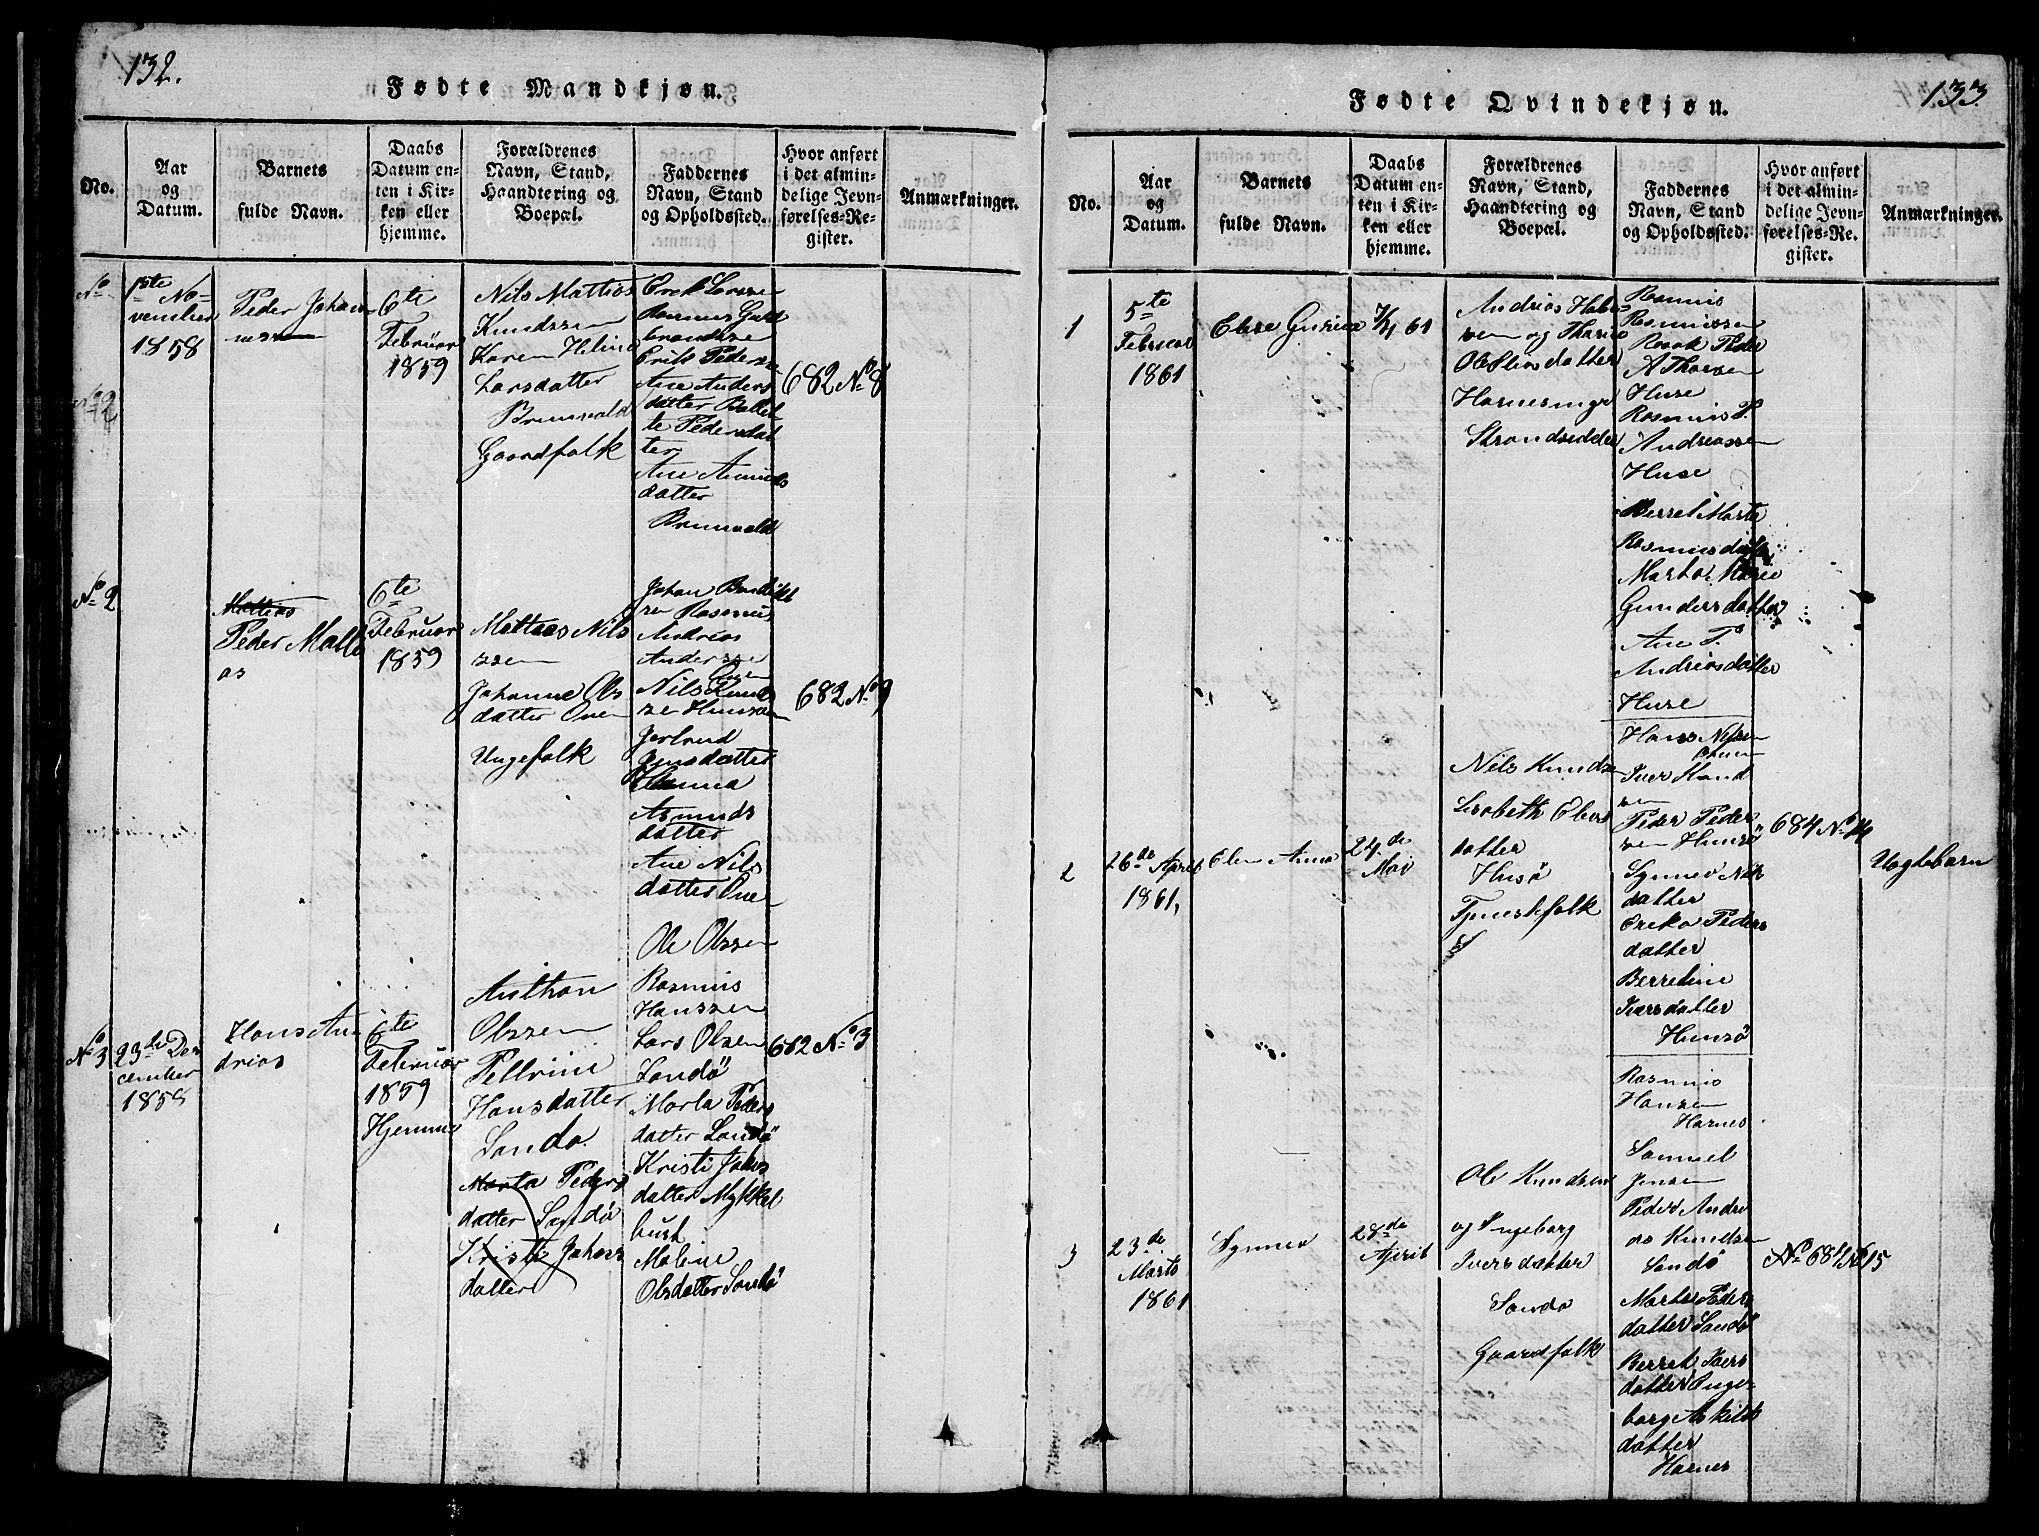 132.
Fødte Mandkjøn.
No.
Aar
og
Datum.
Barnets
fulde Navn.
Daabs
Datum en-
ten i Kir-
ken eller
hjemme.
Forældrenes
Navn, Stand,
Haandtering og
Boepæl.
Faddernes
Navn, Stand
og Opholdssted.
Hvor anført
i det almin-
delige Jevn-
førelses-Re-
gister.
Anmærkninger.
No
1ste No-
vember
1858
Peder Johan
6te
Februar
1859
Nils Mattias
Knudssen
Karen Heline
Larsdatter
Brunvald
Gaardfolk
Erik Larssen
Rasmus Gul
brandsze
Erik Peders
Ane Anders
datter
te Pedersdat
ter
Ane Amunds
datter
Brunvald
682 No 8
No 2
No 2
Mattias
Peder Matti
as
6te
Februar
1859
Mattias Nils
szen
Johanne Ols
datter One
Ungefolk
Johan Bendikt
ze Rasmus
Andrias
Andersze
Nils Knud
ze Huusøen
Gertrud
Jensdatter
Hanna
Asmunds
datter
Ane Nils
datter One
682 No 9
No 3
23de De
cember
1858
Hans An
drias
6te
Februar
1859
Hjemme
Anthon
Olszen
Pelline
Hansdatter
Sandø
Marta Peders
datter Sandø
Kristi Johans
datter
Ole Olszen
Rasmus
Hanssen
Lars Olszen
Sandø
Marta Peders
datter Sandø
Kristi Johans
datter Myklel
bust
Maline
Olsdatter Sandø
682 No 3
133
Fødte Qvindekjøn.
No.
Aar
og
Datum.
Barnets
fulde Navn.
Daabs
Datum en-
ten i Kir-
ken eller
hjemme.
Forældrenes
Navn, Stand,
Haandtering og
Boepæl.
Faddernes
Navn, Stand
og Opholdssted.
Hvor anført
i det almin-
delige Jevn-
førelses-Re-
gister.
Anmærkninger.
1
5te
Februar
1861
Else Gurina
61
Andrias
sen og
datter
Harnes
Strandsidder
Rasmus
Rasmussen
Peder
A Thorsen
Huse
Rasmus P.
Andreassen
Huse
Berret Marte
Rasmusdatter
Marta Marie
Gundersdatter
Ane P.
Andriasdatter
Huse
2
26de April
1861,
Elen Anna
24de
Mai
Nils Knudsz
Lisabeth Elias
datter
Husø
Tjenestfolk
Hans Nilsen
Iver Knud
zen
Peder Peder
sen Huusø
Synnev Nils
datter
Ereka Peders
datter
Berreline
Iversdatter
Huusø
684 No 14
Uægtebarn
3
23de
Marts
1861
Synnev
28de
April
Ole Knudsen
og Ingeborg
Iversdatter
Sandø
Gaardfolk
Rasmus
Hansen
Harnes
Samuel
Jensen
Peder Andre
as Knudsen
Sandø
Marta Peders
datter Sandø
Berret Ivers
datter Inge-
borg Askilds
datter
Harnes
No 684 No 15